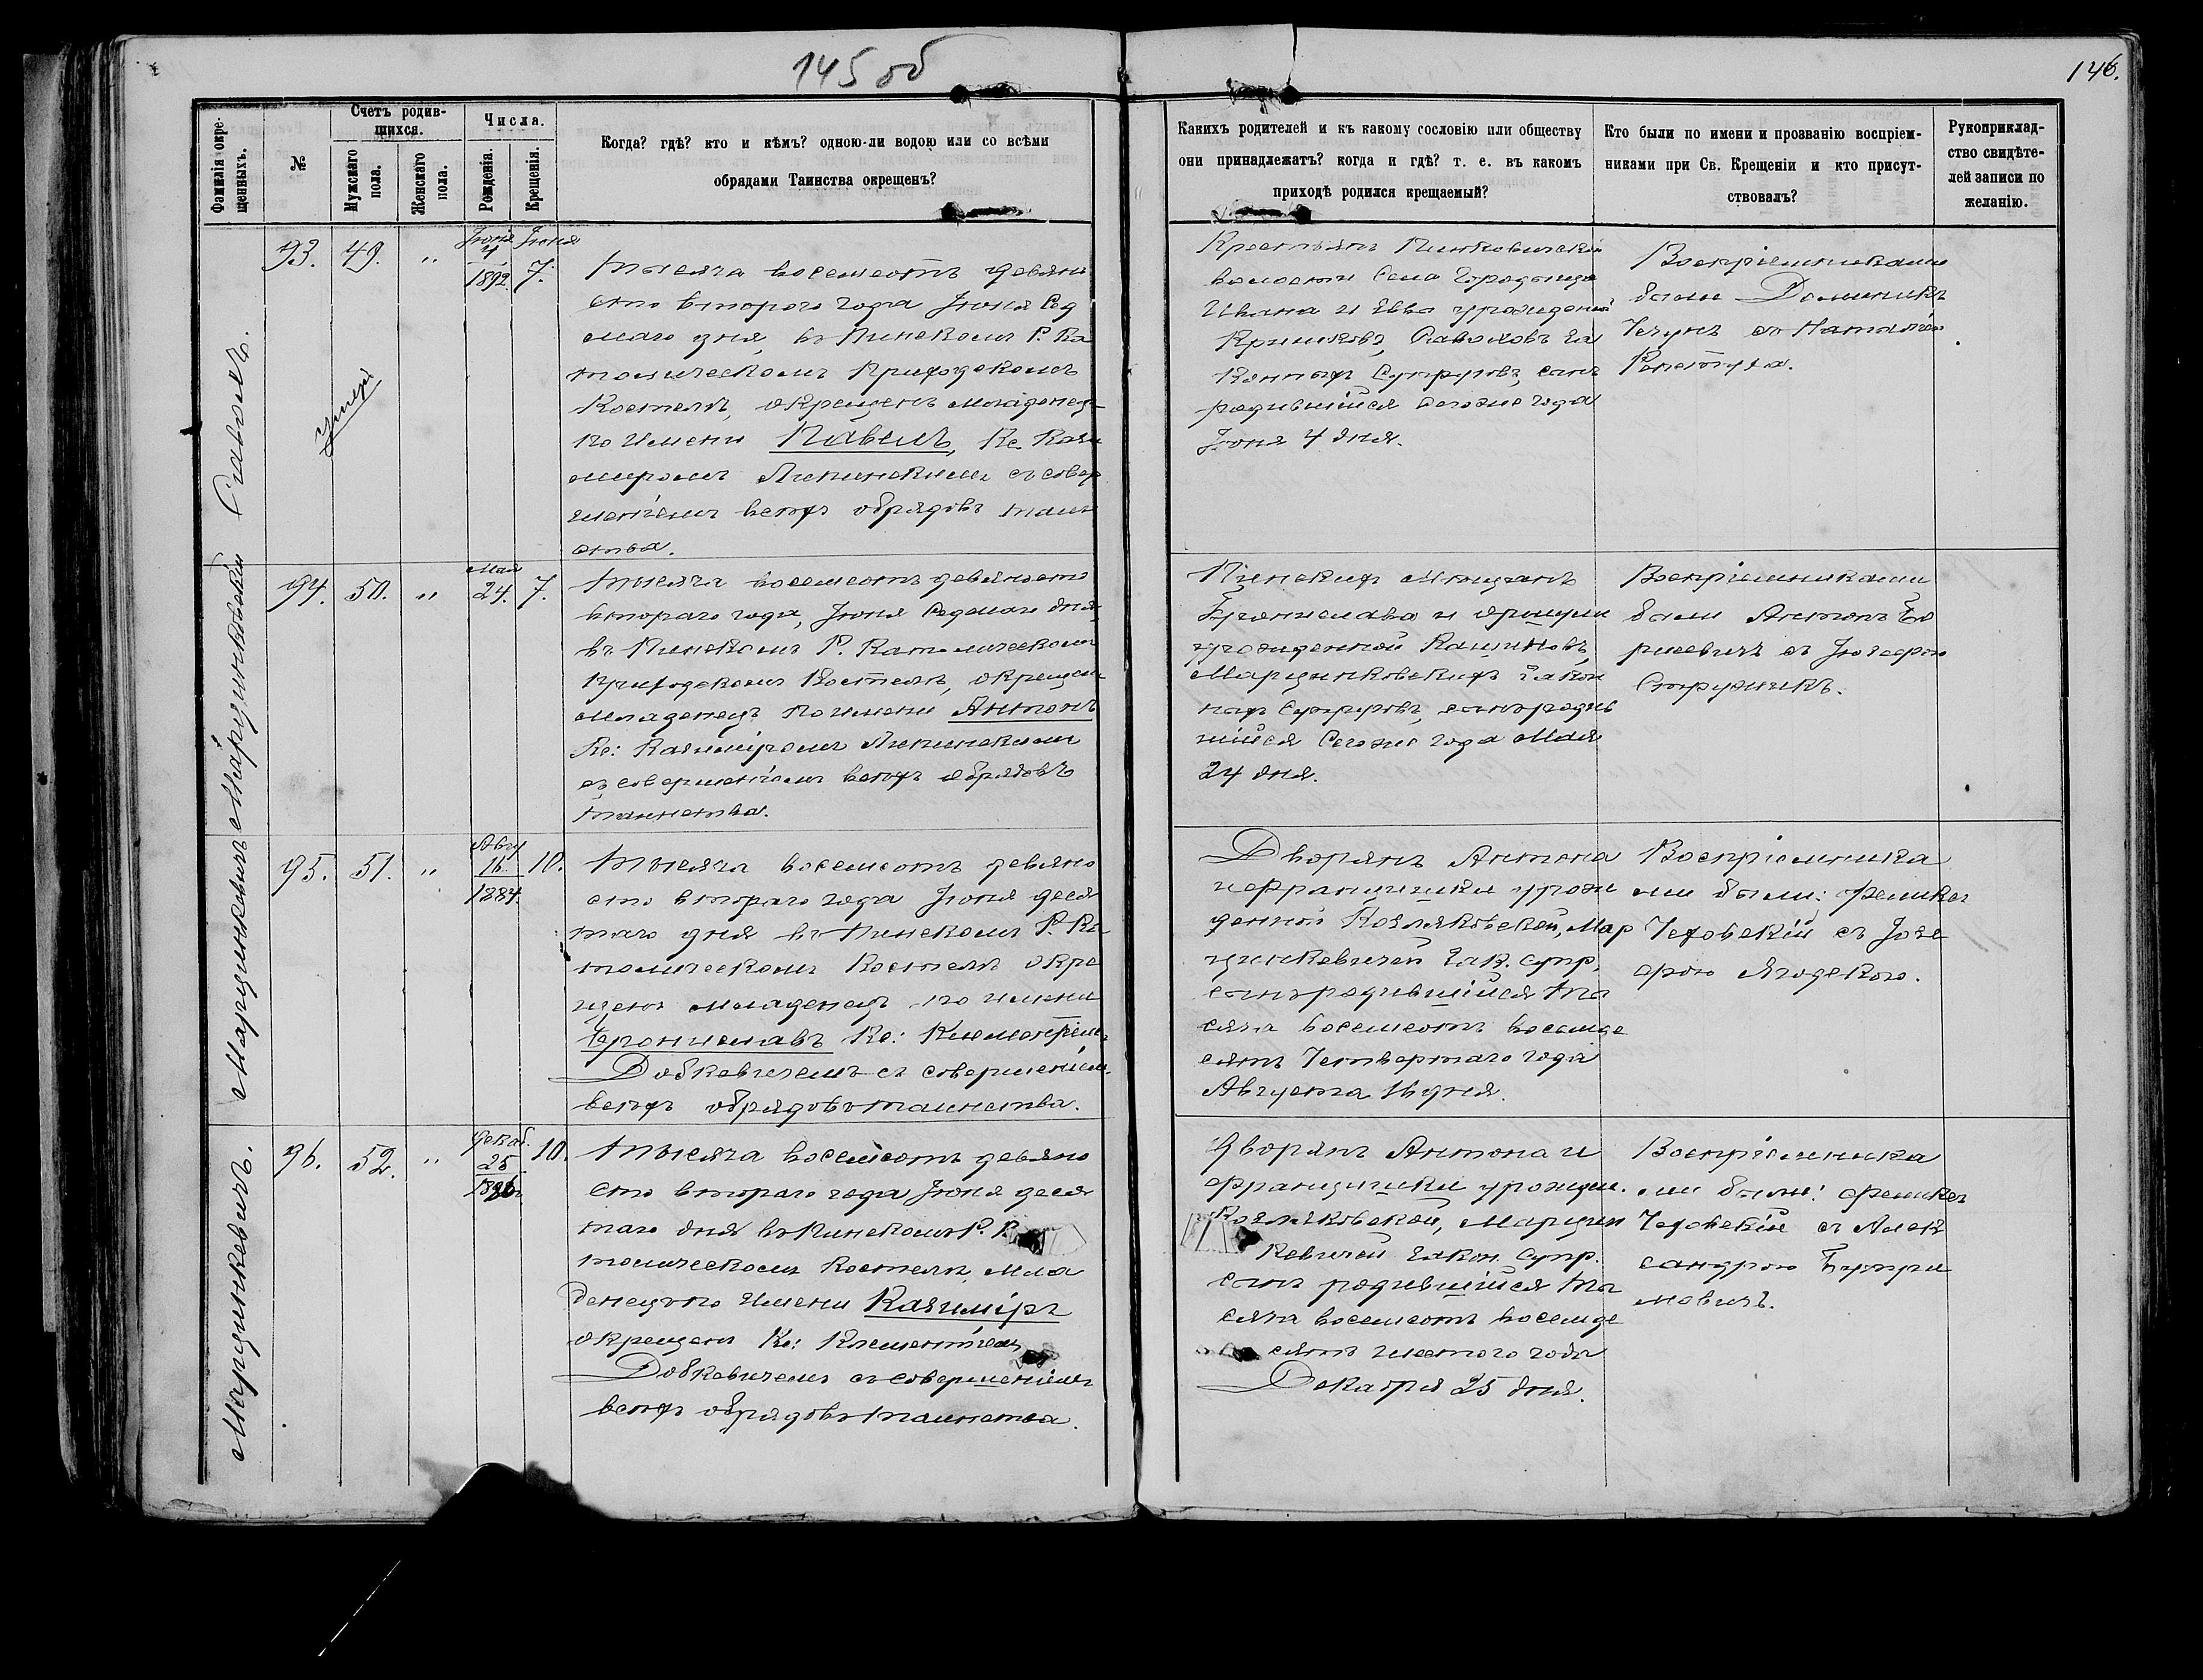 145 об
146.
Фамилія окре-
щенныхъ.
№
Счетъ родив-
шихся.
Мужскаго
пола.
Женскаго
пола.
Числа.
Рожденія.
Крещенія.
Когда? гдѣ? кто и кѣмъ? одною-ли водою или со всѣми
обрядами Таинства окрещенъ?
Какихъ родителей и къ какому сословію или обществу
они принадлежатъ? когда и гдѣ? т. е. въ какомъ
приходѣ родился крещаемый?
Кто были по имени и прозванію воспріем-
никами при Св. Крещеніи и кто присут-
ствовалъ?
Рукоприклад-
ство свидѣте-
лей записи по
желанію.
93.
49.
"
Іюня
4
1892.
Іюня
7.
умеръ
Тысяча восемсотъ девяно
сто втораго года Іюня Сед
маго дня, въ Пинскомъ Р. Ка
толическомъ Приходскомъ
Костелѣ, окрещенъ младенецъ
по имени Павелъ, Кс. Кази
миромъ съ совер
шеніемъ всѣхъ обрядовъ таин
ства.
Крестьянъ
волости Села Городища
Ивана и Евы урожденной
за
конныхъ Супруговъ, сынъ
родившійся Сегоже года
Іюня 4 дня.
Воспріемниками
были Доминикъ
съ Наталіею
94.
50.
"
Мая
24.
7.
Марцинковскій
Тысяча восемсотъ девяносто
втораго года, Іюня Седмаго дня,
въ Пинскомъ Р. Католическомъ
Приходскомъ Костелѣ, окрещенъ
младенецъ по имени Антонъ
Кс: Казиміромъ
съ совершеніемъ всѣхъ обрядовъ
таинства.
Пинскихъ Мѣщанъ
Бронислава и
урожденной
Марцинковскихъ закон
ныхъ Супруговъ, сынъ родив
шійся Сегоже года Мая
24 дня.
Воспріемниками
были Антонъ Бо
рисевичъ съ Іозефою
95.
51.
"
Авгу
16.
1884.
10.
Марцинкевичъ
Тысяча восемсотъ девяно
сто втораго года Іюня деся
таго дня въ Пинскомъ Р. Ка
толическомъ Костелѣ окре
щенъ младенецъ по имени
Брониславъ Кс: Климентіемъ
Добкевичемъ съ совершеніемъ
всѣхъ обрядовъ таинства.
Дворянъ Антона
и Францишки урож
денной Козляковской, Мар
цинкевичей зак. супр,
сынъ родившійся ты
сяча восемсотъ восемде
сятъ Четвертаго года
Августа 16 дня.
Воспріемника
ми были: Феликсъ
Чеховскій съ Іозе
фою Ягодскою.
96.
52.
"
Декаб.
25
1886
10.
Марцинкевичъ.
Тысяча восемсотъ девяно
сто втораго года Іюня деся
таго дня въ Пинскомъ Р. К
толическомъ Костелѣ, мла
денецъ по имени Казиміръ
окрещенъ Кс: Климентіемъ
Добкевичемъ съ совершеніемъ
всѣхъ обрядовъ таинства.
Дворянъ Антона и
Францишки урожден.
Козляковской, Марцин
кевичей закон. супр.
сынъ родившійся ты
сяча восемсотъ восемде
сятъ шестого года
Декабря 25 дня.
Воспріемника
ми были: Феликсъ
Чеховскій съ Алек
сандрою